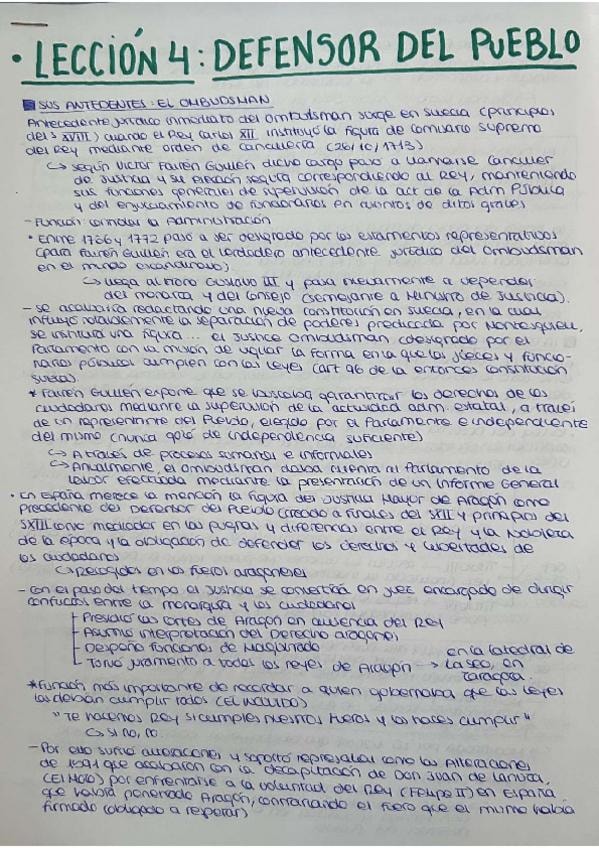 • LECCIÓN 4: DEFENSOR DEL PUEBLO
SUS ANTEDENTES: EL OMBUDSMAN
Antecedente jurídico inmediato del Ombudsman surge en Suecia (principios
del s XVIII) cuando el Rey Carlos XII instituyó la figura de comisario supremo
del Rey mediante orden de cancillería (26/10/1713)
↳ según Victor Fairén Guillén dicho cargo pasó a llamarse Canciller
de Justicia y su elección seguía correspondiendo al Rey, manteniendo
sus funciones generales de supervisión de la act de la Adm Pública
y del enjuiciamiento de funcionarios en cuentos de ditos graves
- Función: controlar la Administración
• Entre 1766 y 1772 pasó a ser designado por los estamentos representativos
(para Fairén Guillén era el verdadero antecedente jurídico del Ombudsman
en el mundo escandinavo)
↳ llega al trono Gustavo III y pasa nuevamente a depender
del monarca y del Consejo (semejante a Ministro de Justicia).
- se acabaría redactando una nueva Constitución en Suecia, en la cual
influyó notablemente la separación de poderes predicada por Montesquieu,
se instituía una figura... el Justice Ombudsman (designado por el
Parlamento con la misión de vigilar la forma en la que los jueces y funcio-
narios públicos cumplen con las leyes (art 96 de la entonces constitución
sueca).
* Fairén Guillén expone que se buscaba garantizar los derechos de los
ciudadanos mediante la supervisión de la actividad adm. estatal, a través
de un representante del Pueblo, elegido por el Parlamento e independiente
del mismo (nunca gozó de independencia suficiente)
↳ A través de procesos sumarios e informales
↳ Anualmente, el ombudsman daba cuenta al Parlamento de la
labor efectuada mediante la presentación de un Informe General
• En España merece la mención la figura del Justicia Mayor de Aragón como
precedente del Defensor del Pueblo (creado a finales del SXII y principios del
SXIII como mediador en las pugnas y diferencias entre el Rey y la Nobleza
de la época y la obligación de defender los derechos y libertades de
los ciudadanos
↳ Recogidos en los fueros aragoneses
- Con el paso del tiempo el Justicia se convertiría en juez encargado de dirigir
conflictos entre la monarquía y los ciudadanos
Presidió las Cortes de Aragón en ausencia del Rey
Asumió interpretación del Derecho aragonés,
Despeñó funciones de Magistrado
Tomó juramento a todos los reyes de Aragón → en la Catedral de
La Seo, en
Zaragoza.
* Función más importante de recordar a quien gobernaba que las leyes
las debían cumplir todos (EL INCLUIDO)
"Te hacemos Rey si cumples nuestros Fueros y los haces cumplir"
↳ Si no, no.
- Por ello sufrió alteraciones y soportó represalias como las Alteraciones
de 1591 que acabaron con la decapitación de Don Juan de Lanuza,
(El Mozo) por enfrentarse a la voluntad del Rey (Felipe II) en España
que había penetrado Aragón, contrariando el fuero que el mismo había
firmado (obligado a respetar)